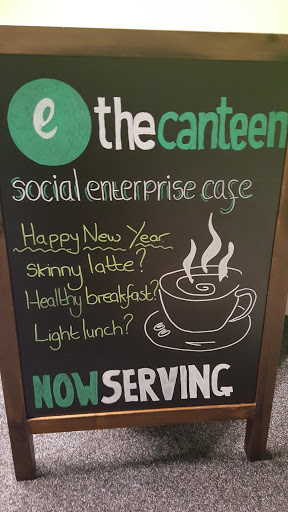 e thecanteen
social enterprise cafe
Happy New Year
skinny latte?
Healthy breakfast?
Light lunch?
NOW SERVING